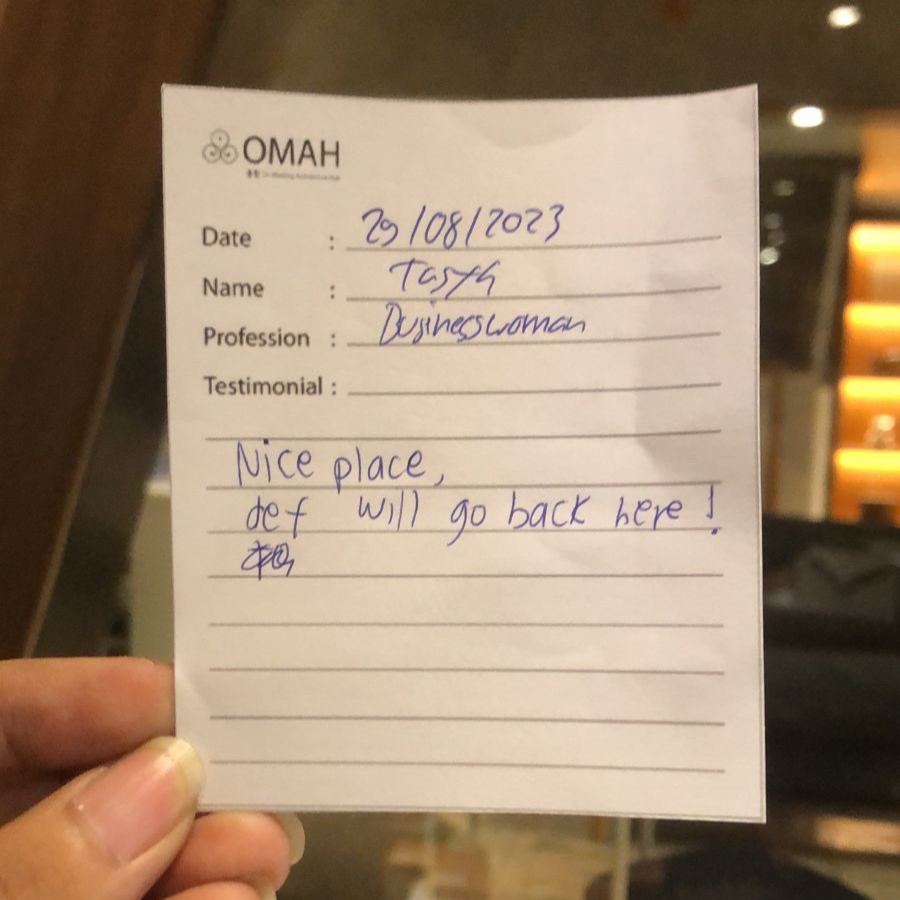 OMAH
Date : 29/08/2023
Name : Tasya
Profession : Businesswoman
Testimonial :
Nice place,
def will go back here!